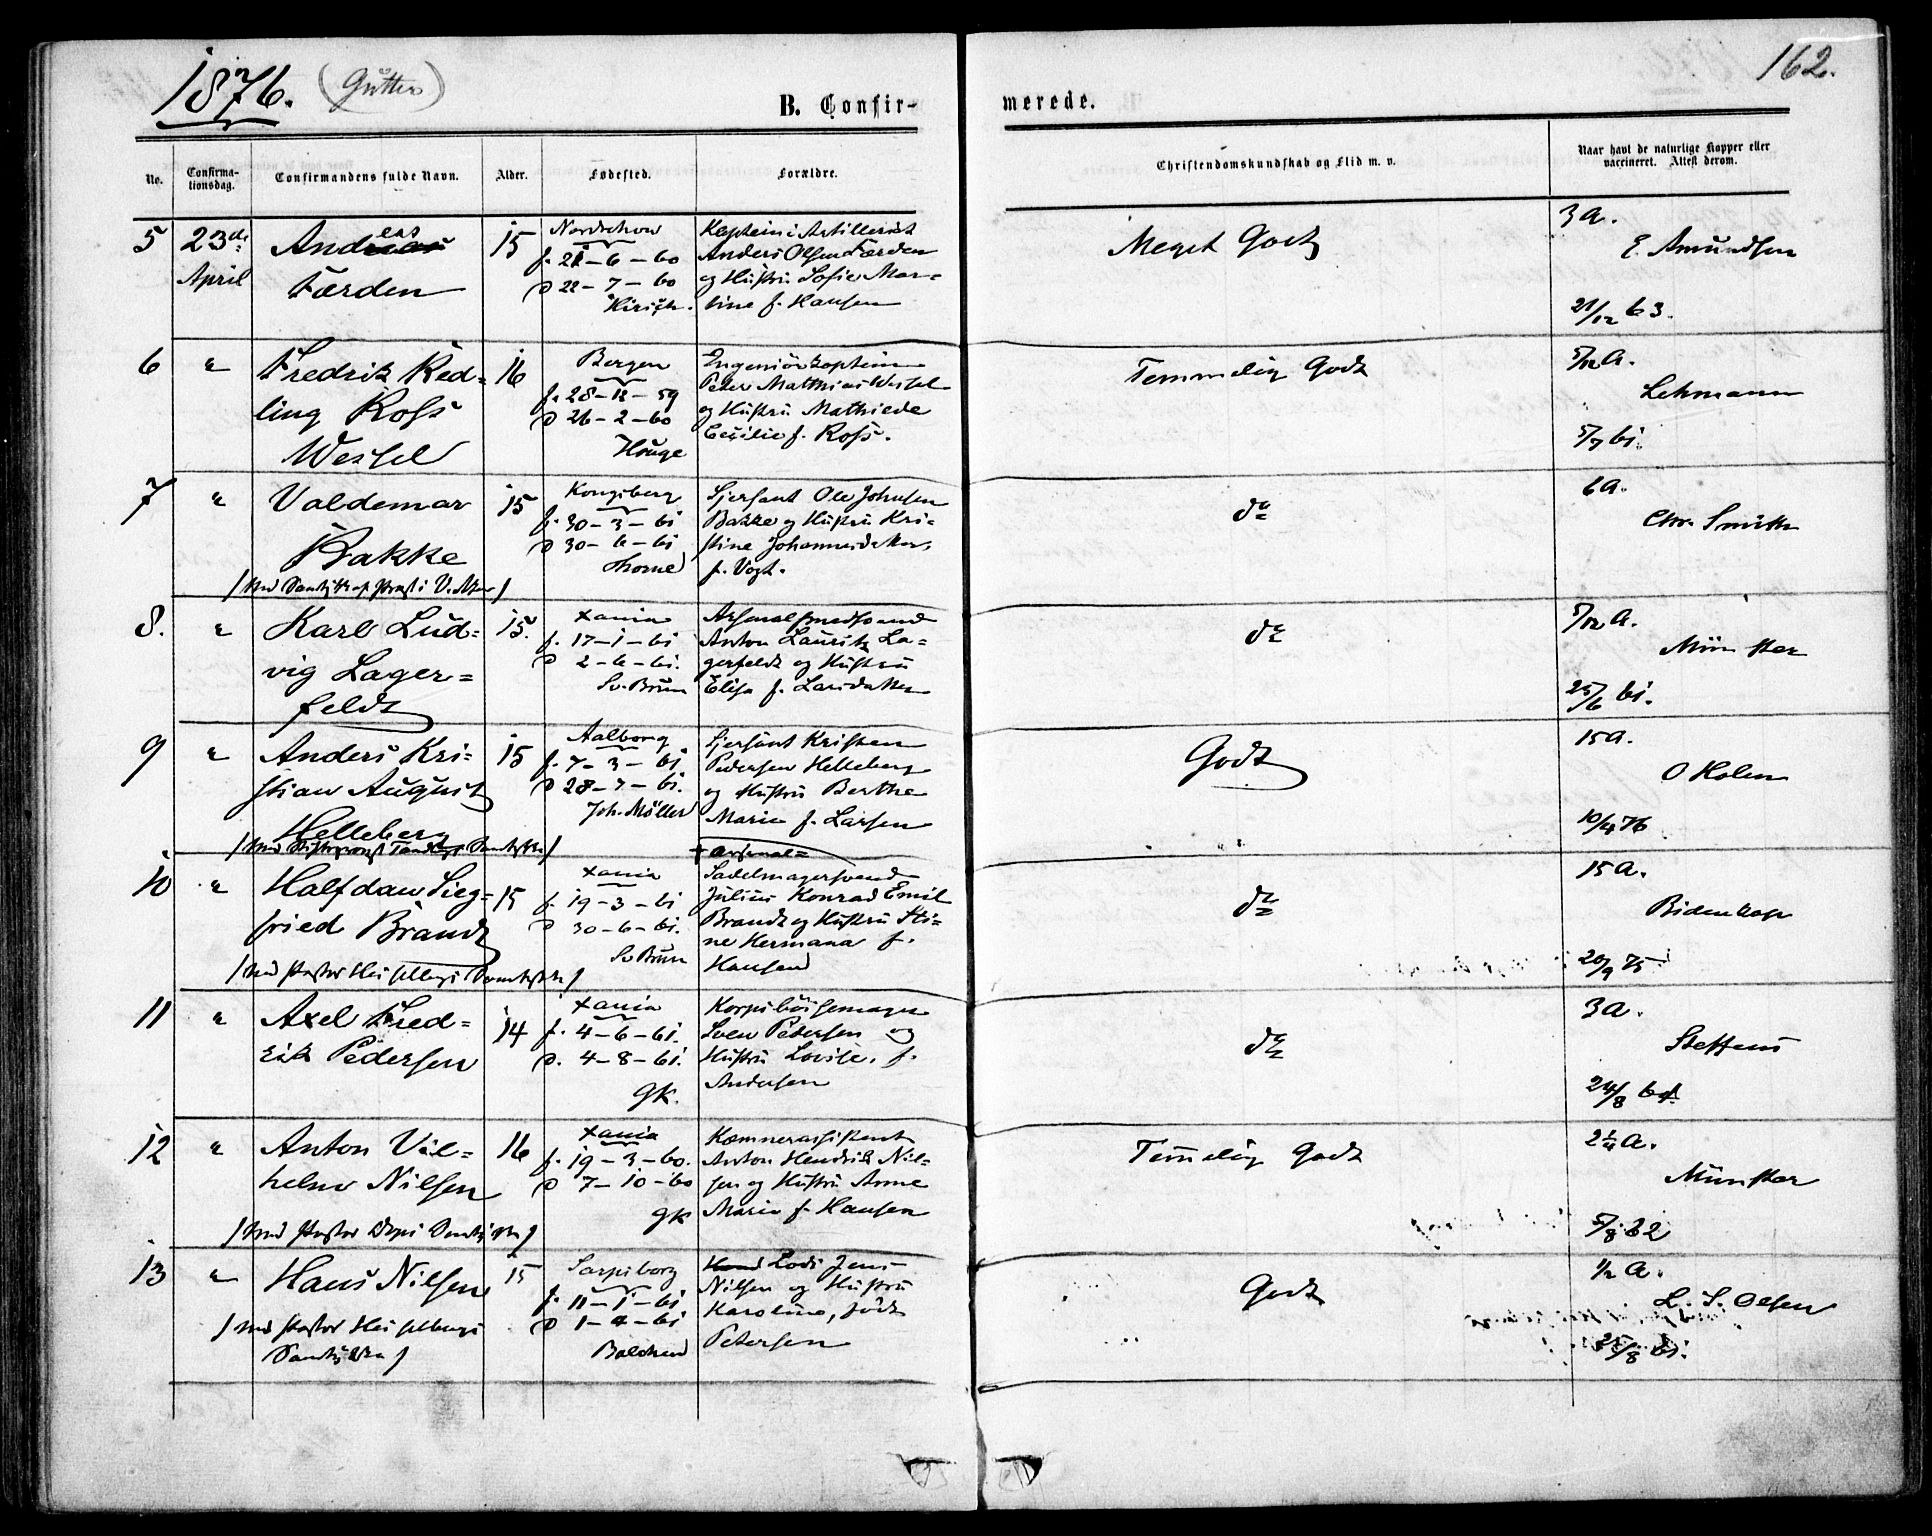 1876. (Gutter)
162.
B. Confir-
merede.
No.
Confirma-
tionsdag.
Confirmandens fulde Navn.
Alder.
Fødested.
Forældre.
Christendomskundskab og Flid m. v.
Naar havt de naturlige Kopper eller
vaccineret. Attest derom.
5
23de
April
Andreas
Færden
15
f. 21-6-60
D 22-7-60
Kaptein i Artilleriet
Anders Olsen Færden
og Hustru Sofie Mar-
tine f. Hansen
Meget Godt
3 a.
E. Amundsen
21/12 63.
6
"
Fredrik Ked-
ling Ross
Wessel
16
Bergen
f. 28-12-59
D 26-2-60
Houge
Ingeniörkaptein
Peter Matthias Wessel
og Hustru Mathiede
Cecilie f. Ross.
Temmelig Godt
5/12 a.
Lehmann
5/7 61.
7
"
Valdemar
Bakke
15
Kongsberg
f. 30-3-61
D 30-6-61
Thorne
Sjersant Ole Johnsen
Bakke og Hustru Kri-
stine
f. Vogt.
do
6 a.
Chr. Smith
8.
"
Karl Lud-
vig Lager-
feldt
15.
Xania
f. 17-1-61
D 2-6-61.
Sv. Brun
Arsenalsmedsvend
Anton Lauritz La-
gerfeldt og Hustru
Elise f. Larsdatter
do
5/12 a.
Münster
25/6 61.
9
"
Anders Kri-
stian August
Helleberg
15
Aalborg
f. 7-3-61
D 28-7-61.
Joh. Möller
Sjersant Kristen
Pedersen Helleberg
og Hustru Berthe
Marie f. Larsen
Godt
15 a.
O Holm
10/4 76
10
"
Halfdan Sieg-
fried Brandt
/ med Pastor Hesselbergs Samtykke /
15
Xania
f. 19-3-61
D 30-6-61.
Sv Brun
+ Arsenal=
Sadelmagersvend
Julius Konrad Emil
Brandt og Hustru Sti-
ne Hermana f.
Hansen
do
15 a.
Bidenkap
20/9 75
11
"
Axel Fred-
rik Pedersen
14
Xania
f. 4-6-61.
D. 4-8-61.
GK.
Korpsbössemager
Sven Pedersen og
Hustru Lovise, f.
Andersen
do
3 a.
Steffens
24/8
12
"
Anton Vil-
helm Nilsen
16
Xania
f. 19-3-60.
D 7-10-60
GK
Kæmnerassistent
Anton Hendrik Nil-
sen og Hustru Anne
Marie f. Hansen
Temmelig Godt
2 1/4 a.
Münster
5/8 62
13
"
Hans Nilsen
/ med Pastor Hesselbergs
Samtykke /
15
Sarpsborg
f. 11-1-61
D 1-4-61
Balchen
Lods Jens
Nilsen og Hustru
Karoline, födt
Petersen
Godt
1/2 a.
L. S. Olsen
25/8 61.